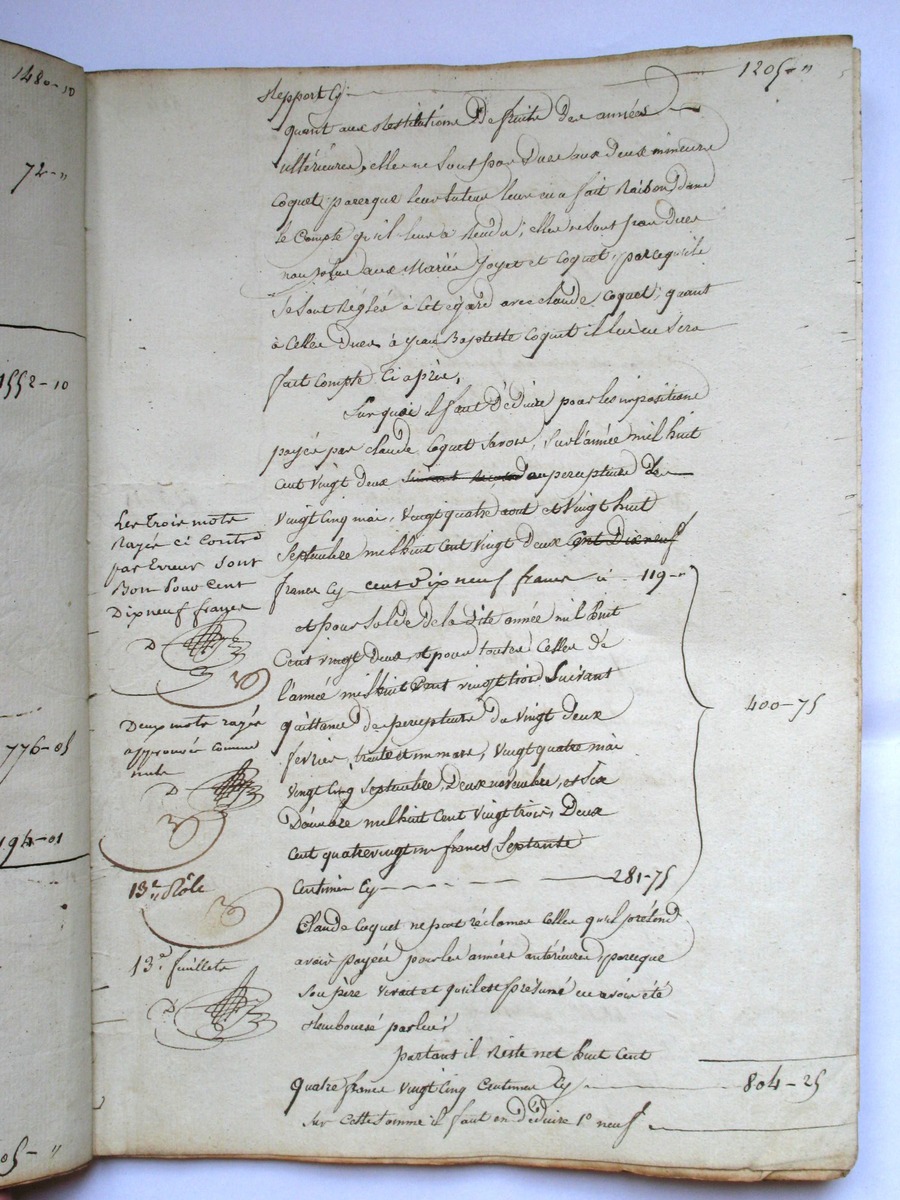 1480-10
72-"
1552-10
776-05
194-01
05-"
Report Cy 1205-"
quant aux Restitutions De fruits Des années
ultérieures, elles ne sont pas Dues aux deux mineurs
Coquet, parceque leur tuteur leur en a fait Raison Dans
le Compte qu'il leur a Rendu; elles ne sont pas Dues
non plus aux Mariés Joyet et Coquet, parcequ'ils
se sont Réglés à cet égard avec claude Coquet; quant
à celles Dues à Jean Baptiste Coquet il lui en sera
fait Compte Ci après,
Sur quoi il faut Déduire pour les impositions
payées par claude Coquet Savoir, sur l'année mil huit
Cent Vingt Deux au percepteur De
Vingt Cinq mai, Vingt quatre aout et Vingt huit
Septembre mil huit Cent Vingt Deux Cent Dix neuf
francs Cy cent Dix neuf francs ci 119-"
et pour Solde De la Dite année mil huit
Cent vingt Deux, et pour toutes Celles De
l'année mil huit Cent vingt trois Suivant
quittances De percepteur Du Vingt Deux
février, trente et un mars, Vingt quatre mai
Vingt Cinq Septembre, Deux novembre, et Six
Décembre mil huit Cent Vingt trois, Deux
Cent quatrevingt un francs Septante
Centimes Cy 281-75
400-75
Claude Coquet ne peut réclamer Celles qu'il prétend
avoir payées pour les années antérieures, parceque
Son père vivait et qu'il est présumé en avoir été
Remboursé par lui;
partant il Reste net huit Cent
quatre francs Vingt Cinq Centimes Cy 804-25
sur Cette Somme il faut en Déduire 1° neuf
Les trois mots
Rayés ci Contre
par Erreur Sont
Bon Pour Cent
Dix neuf francs
Deux mots rayés
approuvés Comme
nuls
13e Rôle
13e feuillets